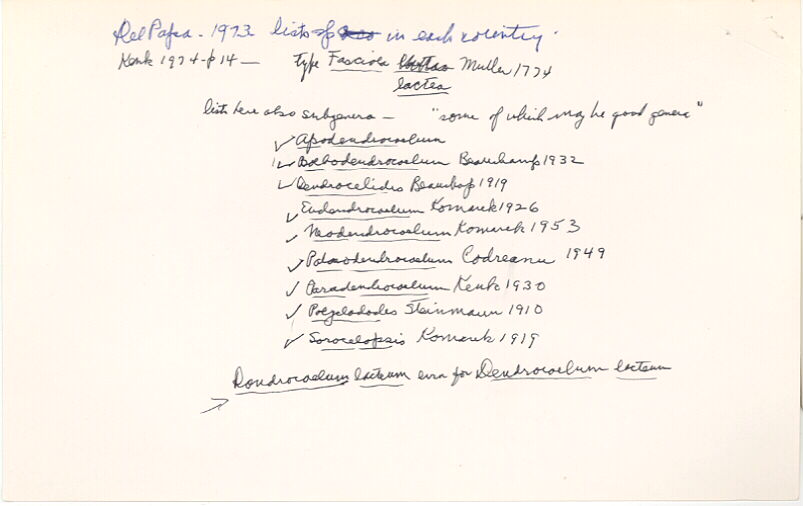 Del Papa - 1973 lists sp in each country.
Kenk 1974 - p14 - type Fasciola Muller 1774
lactea
lists here also subgenera - "some of which may be good genera"
✓ Apodendrocoelum
✓ Bolbodendrocoelum Beauchamp 1932
✓ Dendrocelides Beauchap 1919
✓ Eudendrocoelum Komarek 1926
✓ Neodendrocoelum Komarek 1953
✓ Palaodendrocoelum Codreanu 1949
✓ Paradendrocoelum Kenk 1930
✓ Polycladodes Steinmann 1910
✓ Sorocelopsis Komarek 1919
Dondrocoelum lacteum erra for Dendrocoelum lacteum